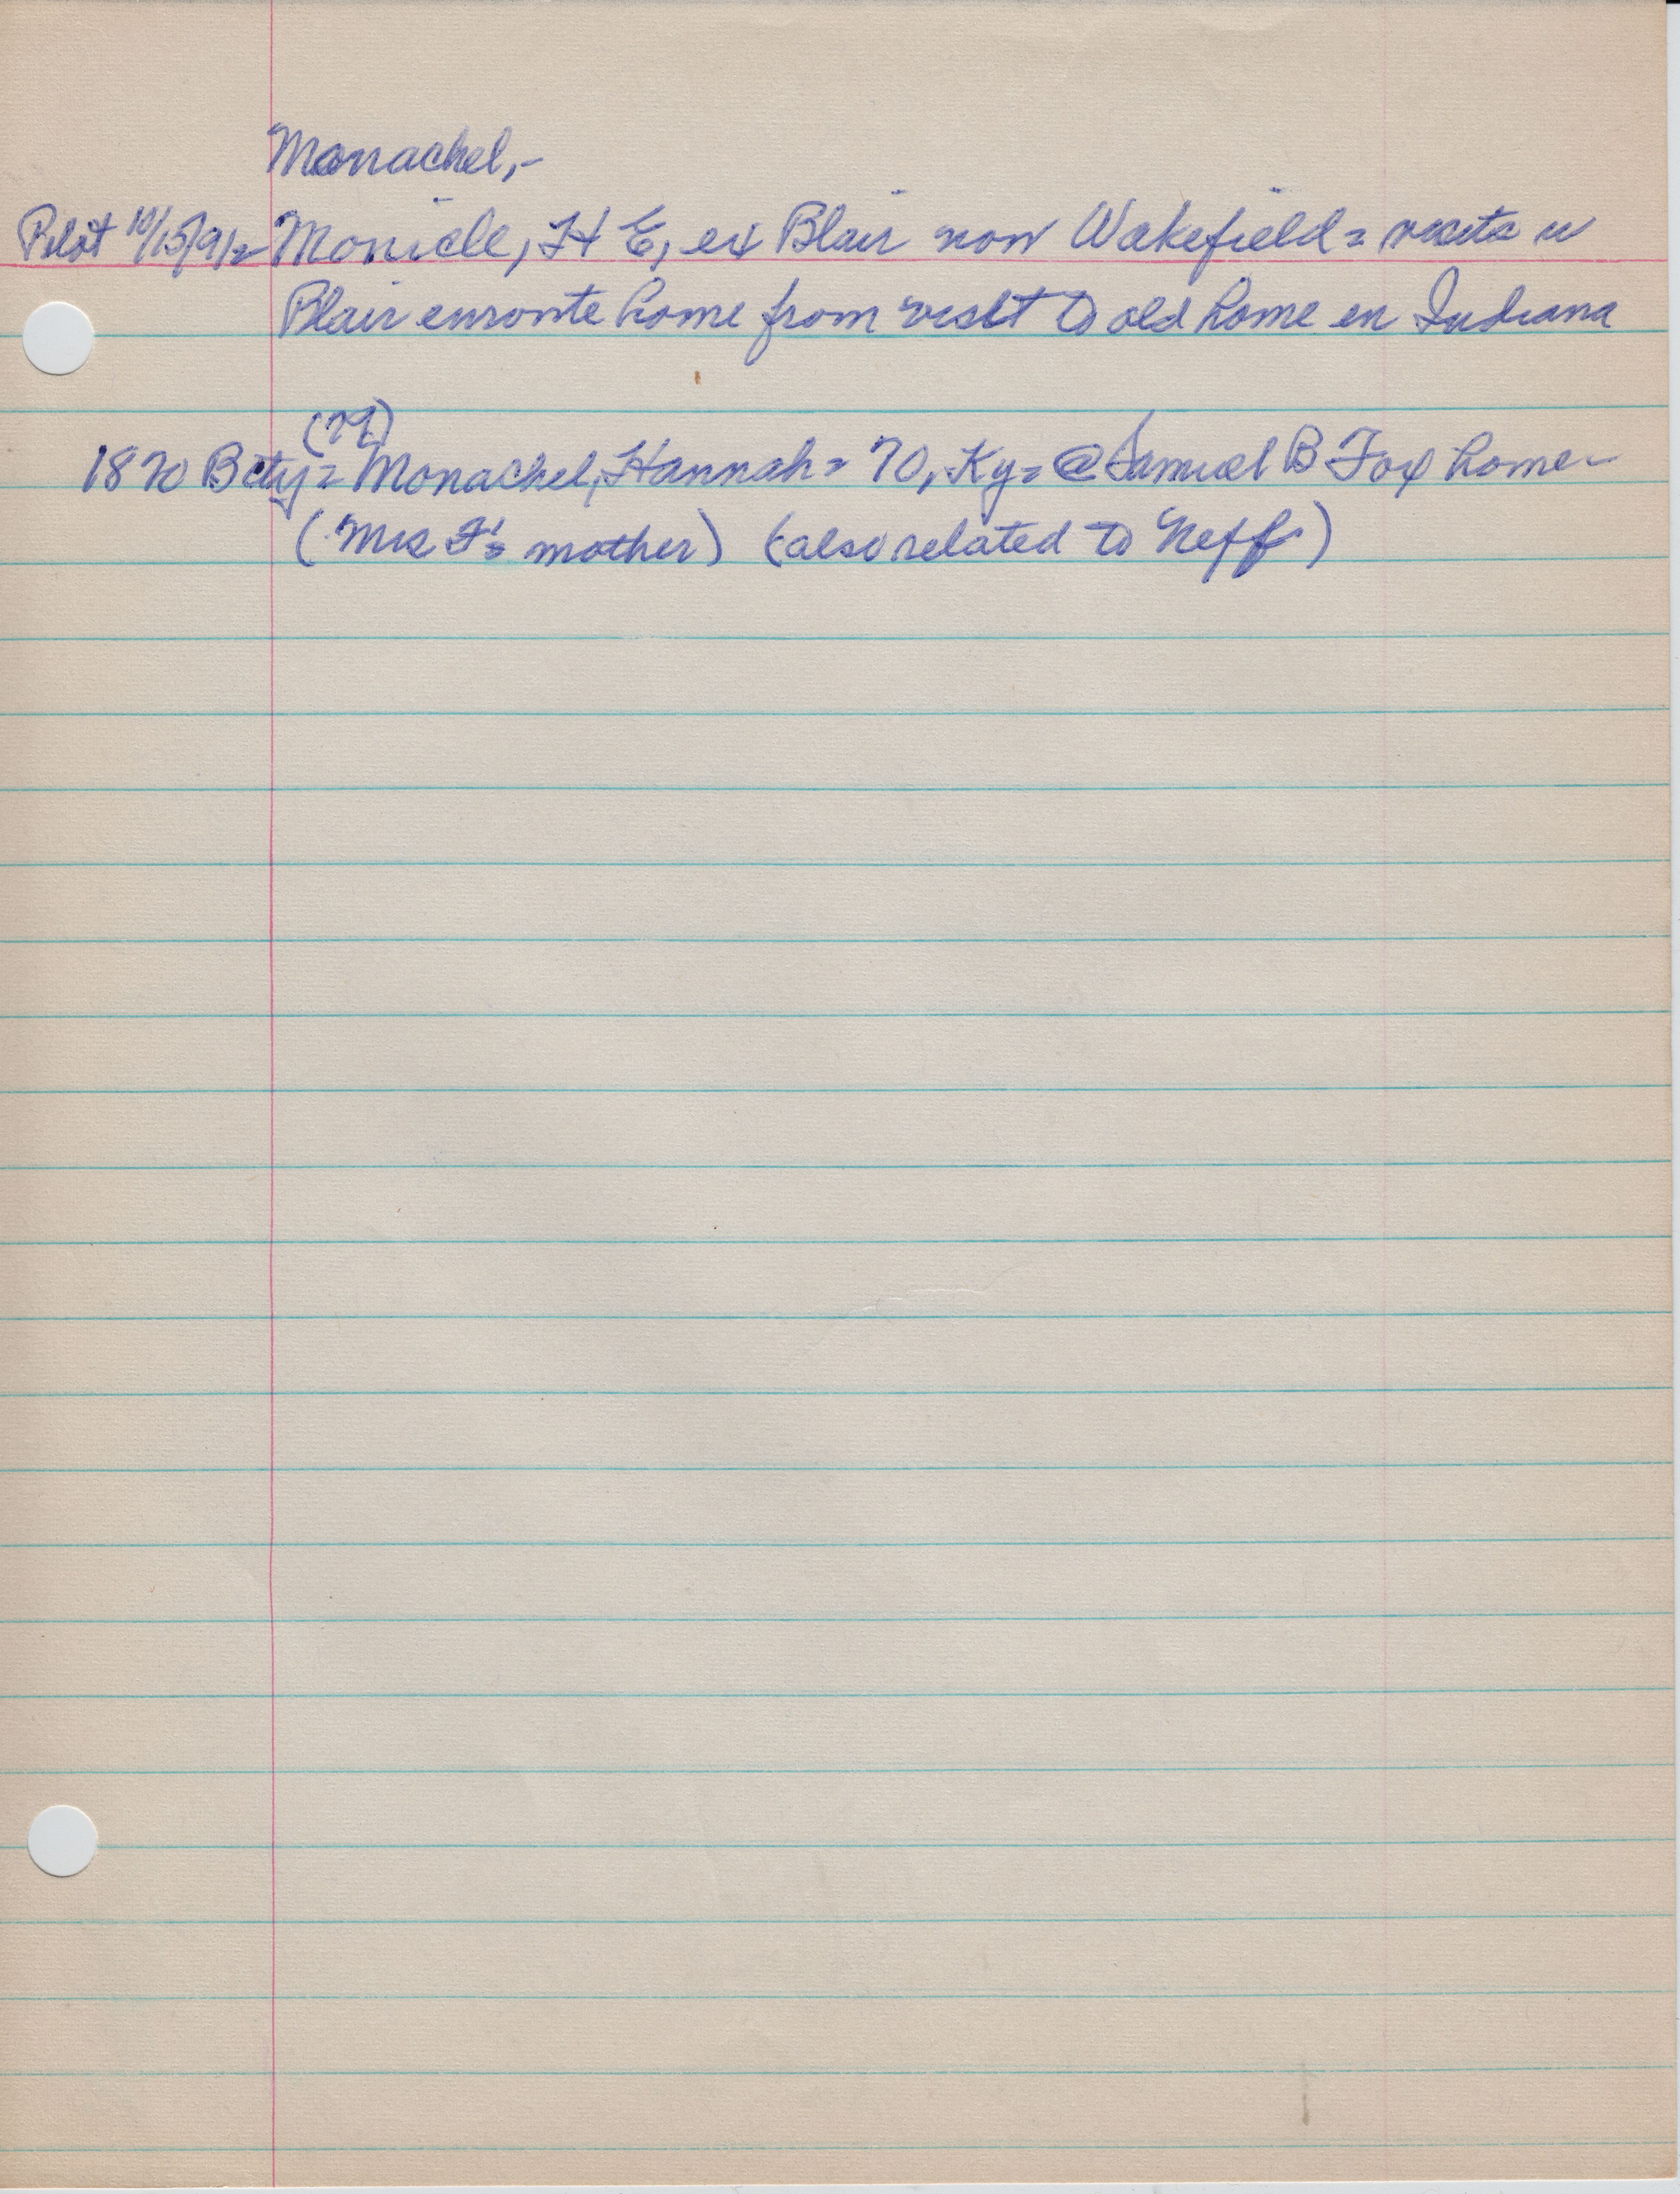 Monachel,-
Pilot 10/15/91/2 Monicle, H E, ex Blair now Wakefield = visits in
Blair enroute home from visit to old home in Indiana
(79)
1870 B City = Monachel, Hannah = 70, Ky = @ Samuel B Fox home -
(Mrs F's mother) (also related to Neff)